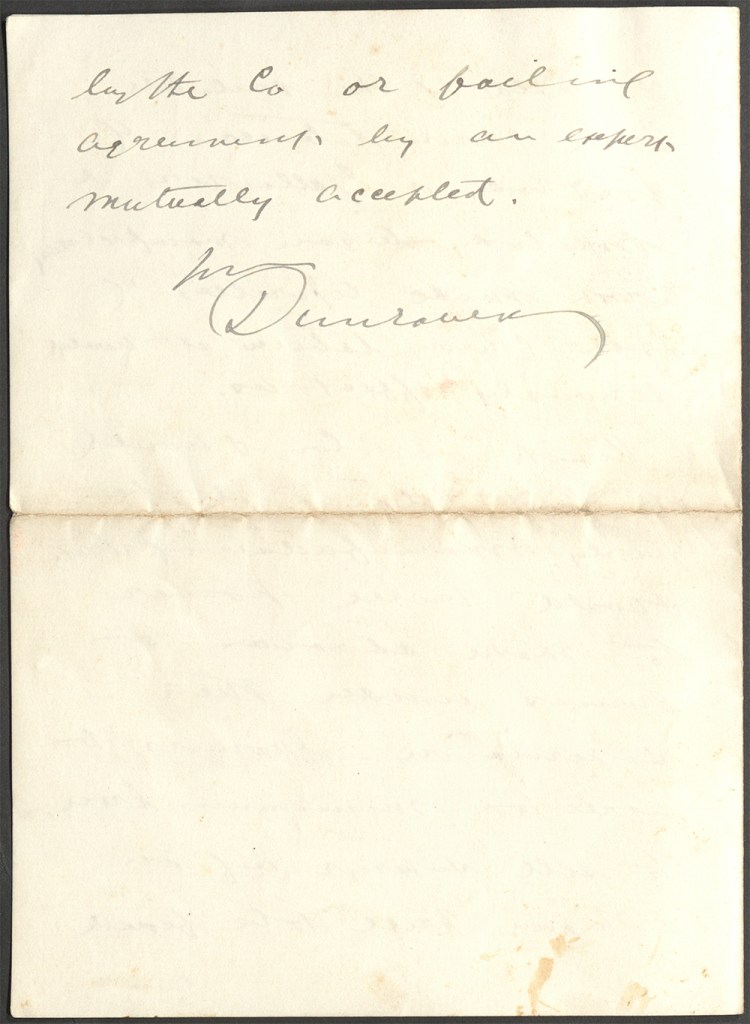 by the Co or failing
agreement by an expert
mutually accepted.
Dunraven